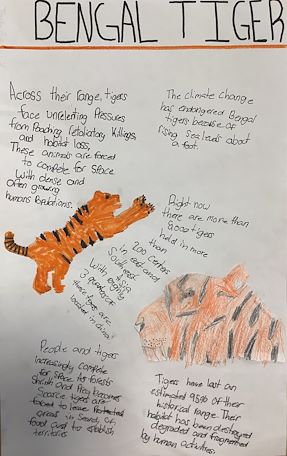 BENGAL TIGER
Across their range, tigers
face unrelenting pressures
from poaching, retaliatory killings,
and habitat loss.
These animals are forced
to compete for space
with dense and
often growing
human populations.
The climate change
has endangered Bengal
tigers because of
rising sea levels about
a foot.
Right now
there are more than
8000 tigers
held in more
than
200 centers
in east and
Southeast
Asia
With roughly
3 quarters of
these tigers are
located in China
People and tigers
increasingly compete
for space. As forests
shrink and Prey becomes
scarce tigers are
forced to leave Protected
areas in search of
food and to establish
territories
Tigers have lost an
estimated 95% of their
historical range. Their
habitat has been destroyed
degraded and fragmented
by human activities.